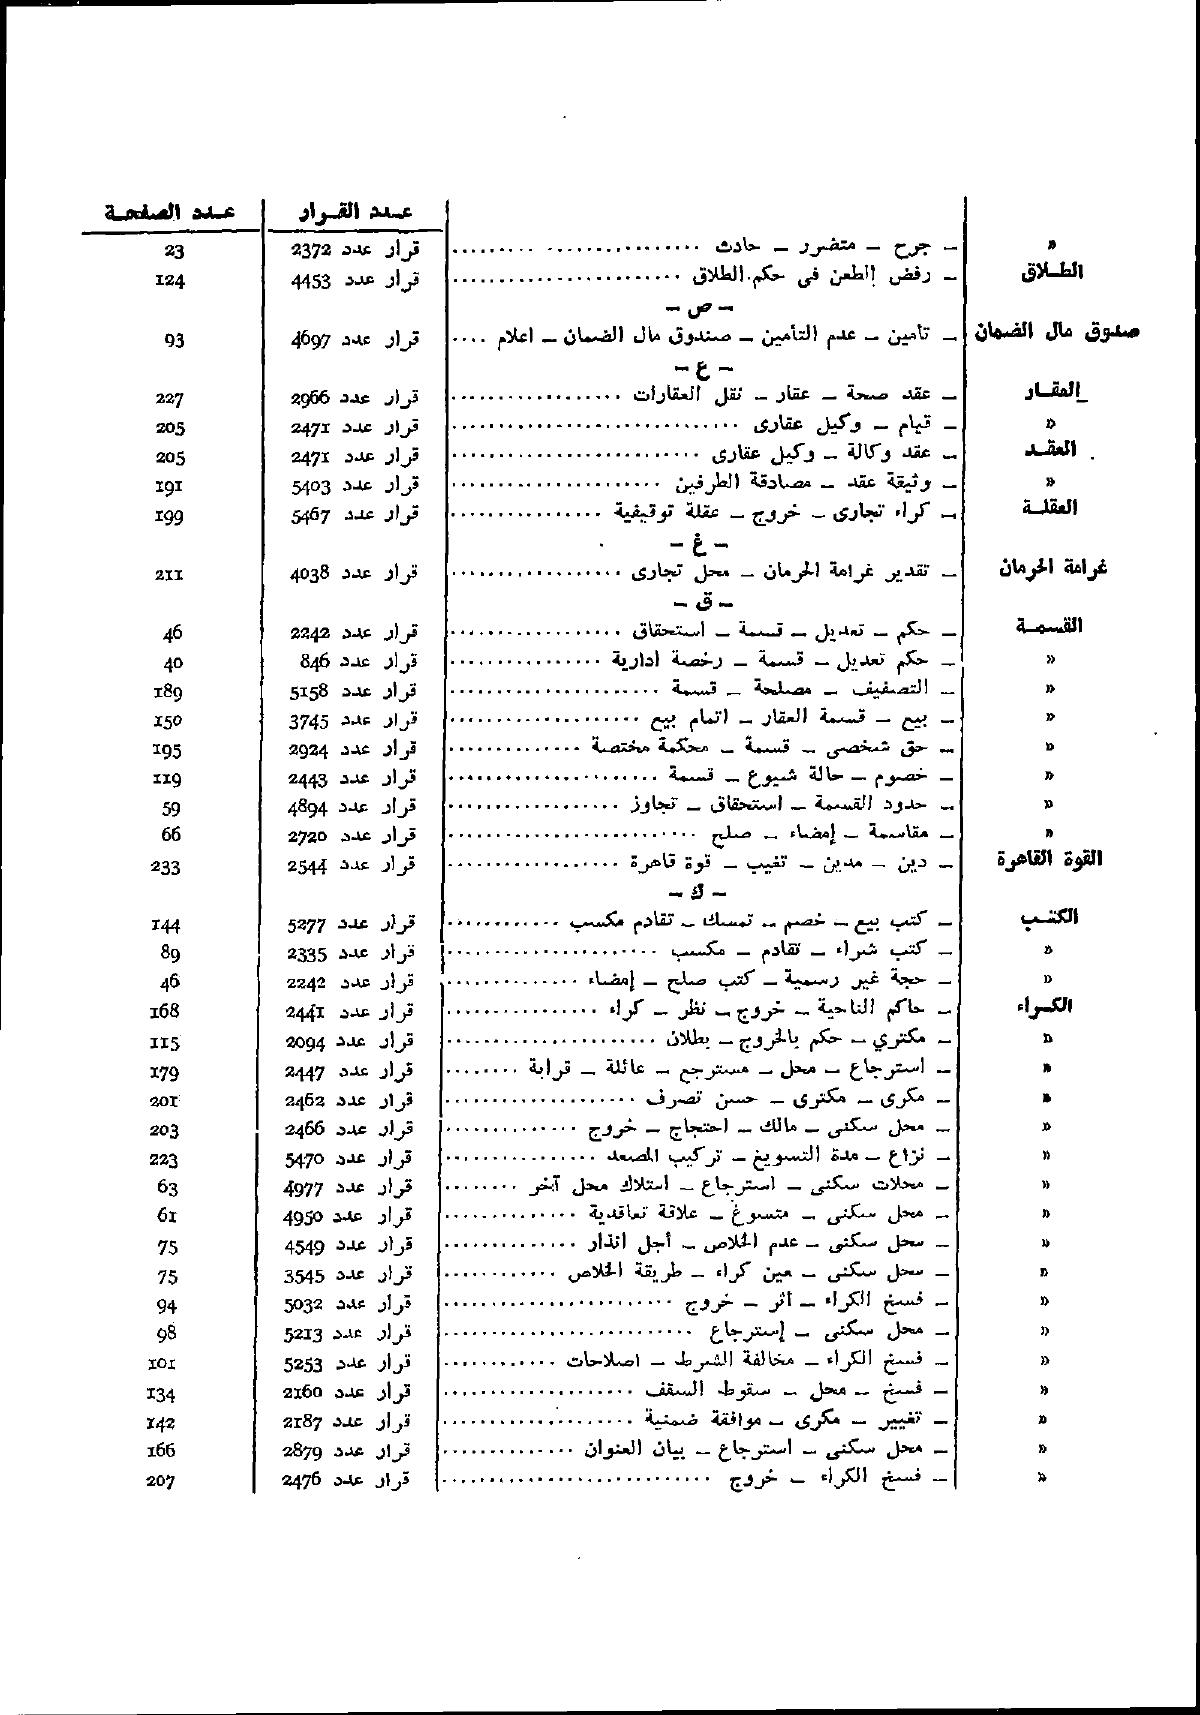 عدد القرار عدد الصفحة
« – جرح – متضرر – حادث ........ قرار عدد 2372 23
الطلاق – رفض الطعن في حكم الطلاق ........ قرار عدد 4453 124
– ص –
صندوق مال الضمان – تأمين – عدم التأمين – صندوق مال الضمان – اعلام .... قرار عدد 4697 93
– ع –
العقار – عقد صحة – عقار – نقل العقارات ........ قرار عدد 2966 227
« – قيام – وكيل عقارى ........ قرار عدد 2471 205
العقد – عقد وكالة – وكيل عقارى ........ قرار عدد 2471 205
« – وثيقة عقد – مصادقة الطرفين ........ قرار عدد 5403 191
العقلة – كراء تجارى – خروج – عقلة توقيفية ........ قرار عدد 5467 199
– غ –
غرامة الحرمان – تقدير غرامة الحرمان – محل تجارى ........ قرار عدد 4038 211
– ق –
القسمة – حكم – تعديل – قسمة – استحقاق ........ قرار عدد 2242 46
« – حكم تعديل – قسمة – رخصة ادارية ........ قرار عدد 846 40
« – التصفيف – مصلحة – قسمة ........ قرار عدد 5158 189
« – بيع – قسمة العقار – اتمام بيع ........ قرار عدد 3745 150
« – حق شخصى – قسمة – محكمة مختصة ........ قرار عدد 2924 195
« – خصوم – حالة شيوع – قسمة ........ قرار عدد 2443 119
« – حدود القسمة – استحقاق – تجاوز ........ قرار عدد 4894 59
« – مقاسمة – إمضاء – صلح ........ قرار عدد 2720 66
القوة القاهرة – دين – مدين – تغيب – قوة قاهرة ........ قرار عدد 2544 233
– ك –
الكتب – كتب بيع – خصم – تمسك – تقادم مكسب ........ قرار عدد 5277 144
« – كتب شراء – تقادم – مكسب ........ قرار عدد 2335 89
« – حجة غير رسمية – كتب صلح – إمضاء ........ قرار عدد 2242 46
الكراء – حاكم الناحية – خروج – نظر – كراء ........ قرار عدد 2441 168
« – مكتري – حكم بالخروج – بطلان ........ قرار عدد 2094 115
« – استرجاع – محل – مسترجع – عائلة – قرابة ........ قرار عدد 2447 179
« – مكرى – مكترى – حسن تصرف ........ قرار عدد 2462 201
« – محل سكنى – مالك – احتجاج – خروج ........ قرار عدد 2466 203
« – نزاع – مدة التسويغ – تركيب المصعد ........ قرار عدد 5470 223
« – محلات سكنى – استرجاع – امتلاك محل آخر ........ قرار عدد 4977 63
« – محل سكنى – متسوغ – علاقة تعاقدية ........ قرار عدد 4950 61
« – محل سكنى – عدم الخلاص – أجل انذار ........ قرار عدد 4549 75
« – محل سكنى – عين كراء – طريقة الخلاص ........ قرار عدد 3545 75
« – فسخ الكراء – اثر – خروج ........ قرار عدد 5032 94
« – محل سكنى – إسترجاع ........ قرار عدد 5213 98
« – فسخ الكراء – مخالفة الشرط – اصلاحات ........ قرار عدد 5253 101
« – فسخ – محل – سقوط السقف ........ قرار عدد 2160 134
« – تغيير – مكرى – موافقة ضمنية ........ قرار عدد 2187 142
« – محل سكنى – استرجاع – بيان العنوان ........ قرار عدد 2879 166
« – فسخ الكراء – خروج ........ قرار عدد 2476 207